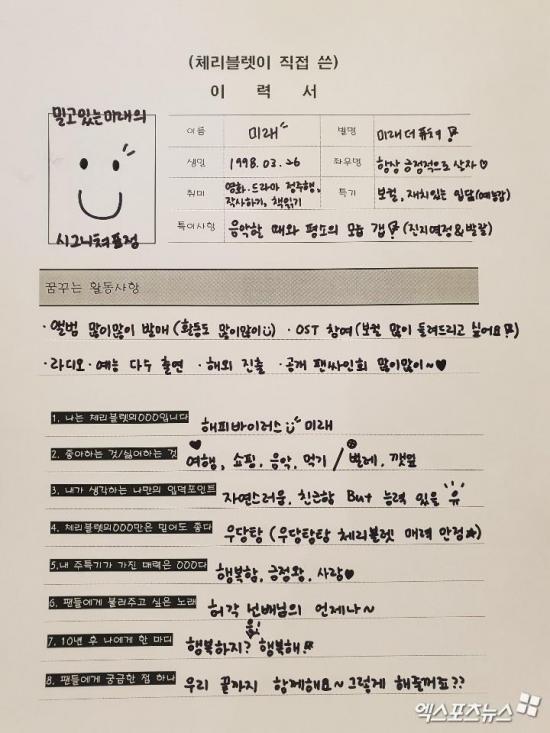 (체리블렛이 직접 쓴)
이 력 서
밀고있는미래의
시그니쳐표정
이름 미래 별명 미래 더 퓨쳐
생일 1998.03.26 좌우명 항상 긍정적으로 살자♡
취미 영화·드라마 정주행, 작사하기, 책읽기 특기 보컬, 재치있는 입담(예능감)
특이사항 음악할 때와 평소의 모습 갭 (진지예정&발랄)
꿈꾸는 활동사항
· 앨범 많이많이 발매 (활동도 많이많이) · OST 참여 (보컬 많이 들려드리고 싶어요)
· 라디오·예능 다수 출연 · 해외 진출 · 공개 팬싸인회 많이많이~♥
1. 나는 체리블렛의OOO입니다 해피바이러스 미래
2. 좋아하는 것/싫어하는 것 여행, 쇼핑, 음악, 먹기 / 벌레, 깻잎
3. 내가 생각하는 나만의 입덕포인트 자연스러움, 친근함 But 능력 있을 유
4. 체리블렛의OOO만은 믿어도 좋다 우당탕 (우당탕탕 체리블렛 매력 안정★)
5.내 주특기가 가진 매력은 OOO다 행복함, 긍정왕, 사랑♥
6. 팬들에게 불러주고 싶은 노래 허각 선배님의 언제나~
7. 10년 후 나에게 한 마디 행복하지? 행복해
8. 팬들에게 궁금한 점 하나 우리 끝까지 함께해요~ 그렇게 해줄꺼죠??
엑스포츠뉴스